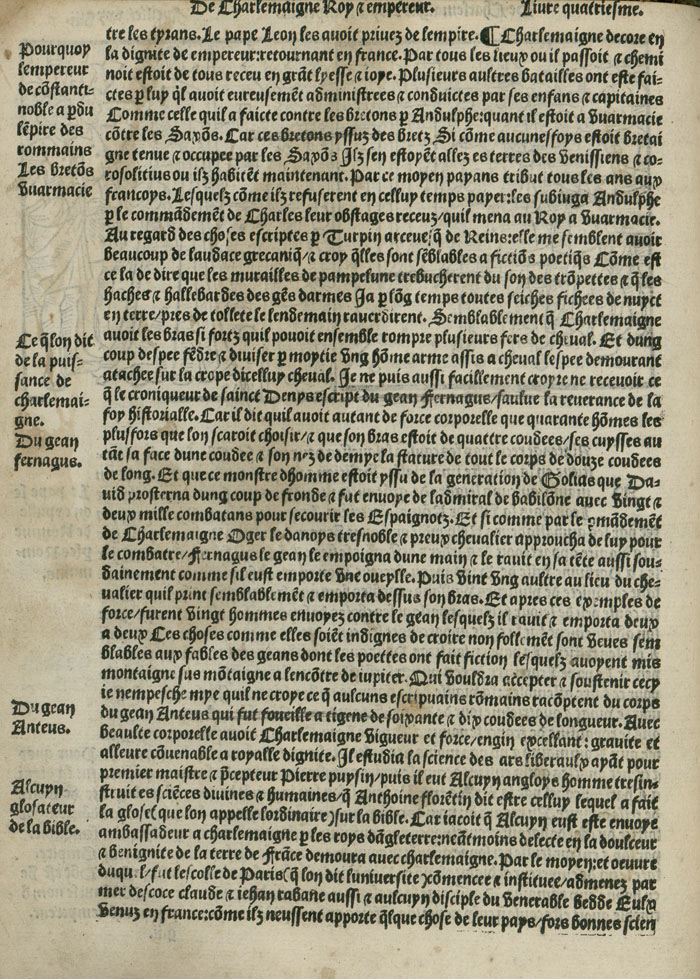 De Charlemaigne Roy ⁊ empereur. Liure quatriesme.
Pourquoy
lempereur
de cõstanti-
noble a pdu
lẽpire des
rommains
Les bretõs
vuarmacie
Ce q̃ lon dit
de la puis-
sance de
charlemai-
gne.
Du gean
fernagus.
Du gean
Anteus.
Alcuyn
glosateur
de la bible.
tre les tyrans. Le pape Leon les auoit priuez de lempire. ¶ Charlemaigne decore en
la dignite de empereur: retournant en france. Par tous les lieux ou il passoit ⁊ chemi
noit estoit de tous receu en grãt lyesse ⁊ ioye. Plusieurs aultres batailles ont este fai-
ctes p luy q̃l auoit eureusement administrees ⁊ conduictes par ses enfans ⁊ capitaines
Comme celle quil a faicte contre les bretons p Andulphe: quant il estoit a vuarmacie
cõtre les Saxõs. Car ces bretons yssuz des bretz Si cõme aucunesfoys estoit bretai
gne tenue ⁊ occupee par les Saxõs Ilz sen estoyẽt allez es terres des venissiens ⁊ co-
rosolitius ou ilz habitẽt maintenant. Par ce moyen payans tribut tous les ans aux
francoys. Lesquelz cõme ilz refuserent en celluy temps payer: les subiuga Andulphe
p le commãdemẽt de Charles leur obstages receuz/ quil mena au Roy a vuarmacie.
Au regard des choses escriptes p Turpin arceuesq̃ de Reins: elle me semblent auoir
beaucoup de laudace grecaniq̃/ ⁊ croy q̃lles sont sẽblables a fictiõs poetiq̃s Cõme est
ce la de dire que les murailles de pampelune trebucherent du son des trõpettes ⁊ q̃ les
haches ⁊ hallebardes des gẽs darmes Ja p lõg temps toutes seiches fichees de nuyct
en terre/ pres de tollete le lendemain rauerdirent. Semblablement q̃ Charlemaigne
auoit les bras si fortz quil pouoit ensemble rompre plusieurs fers de cheual. Et dung
coup despee fẽdre ⁊ diuiser p moytie vng hõme arme assis a cheual lespee demourant
atachee sur la crope dicelluy cheual. Je ne puis aussi facillement croyre ne receuoir ce
q̃ le croniqueur de sainct Denys escript du gean Fernagus/ saulue la reuerance de la
foy historialle. Car il dit quil auoit autant de force corporelle que quarante hõmes les
plusfors que lon scaroit choisir/ ⁊ que son bras estoit de quattre coudees/ ses cuysses au
tãt sa face dune coudee ⁊ son nez de demye la stature de tout le corps de douze coudees
de long. Et que ce monstre dhomme estoit yssu de la generation de Golias que Da-
uid prosterna dung coup de fronde ⁊ fut enuoye de ladmiral de babilõne auec vingt ⁊
deux mille combatans pour secourir les Espaignotz. Et si comme par le cmãdemẽt
de Charlemaigne Oger le danoys tresnoble ⁊ preux cheualier approucha de luy pour
le combatre/ Fernagus le gean le empoigna dune main ⁊ le rauit en sa tẽte aussi sou-
dainement comme sil eust emporte vne oueylle. Puis vint vng aultre au lieu du che-
ualier quil print semblablemẽt ⁊ emporta dessus son bras. Et apres ces exemples de
force/ furent vingt hommes enuoyez contre le gean lesquelz il rauit ⁊ emporta deux
a deux Ces choses comme elles soiẽt indignes de croire non follemẽt sont veues sem
blables aux fables des geans dont les poettes ont fait fiction lesquelz auoyent mis
montaigne sus mõtaigne a lencõtre de iupiter. Qui vouldra accepter ⁊ soustenir cecy
ie nempesche mye quil ne croye ce q̃ aulcuns escripuains rõmains racõptent du corps
du gean Anteus qui fut foueille a tigene de soixante ⁊ dix coudees de longueur. Auec
beaulte corporelle auoit Charlemaigne vigueur et force/ engin excellant: grauite et
alleure cõuenable a royalle dignite. Il estudia la science des ars liberaulx ayãt pour
premier maistre ⁊ p̃cepteur Pierre puysin/ puis il eut Alcuyn angloys homme tresin-
struit es sciẽces diuines ⁊ humaines/ q̃ Anthoine florẽtin dit estre celluy lequel a fait
la glose( que lon appelle lordinaire) sur la bible. Car iacoit q̃ Alcuyn eust este enuoye
ambassadeur a charlemaigne p les roys dãgleterre: neãtmoins delecte en la doulceur
⁊ benignite de la terre de frãce demoura auec charlemaigne. Par le moyen: et oeuure
duquel/ fut lescolle de Paris( q̃ lon dit luniuersite) cõmencee ⁊ instituee/ admenez par
mer descoce claude ⁊ iehan rabane aussi ⁊ aulcuyn disciple du venerable bedde Eulx
venuz en france: cõme ilz neussent apporte q̃lque chose de leur pays/ fors bonnes scien